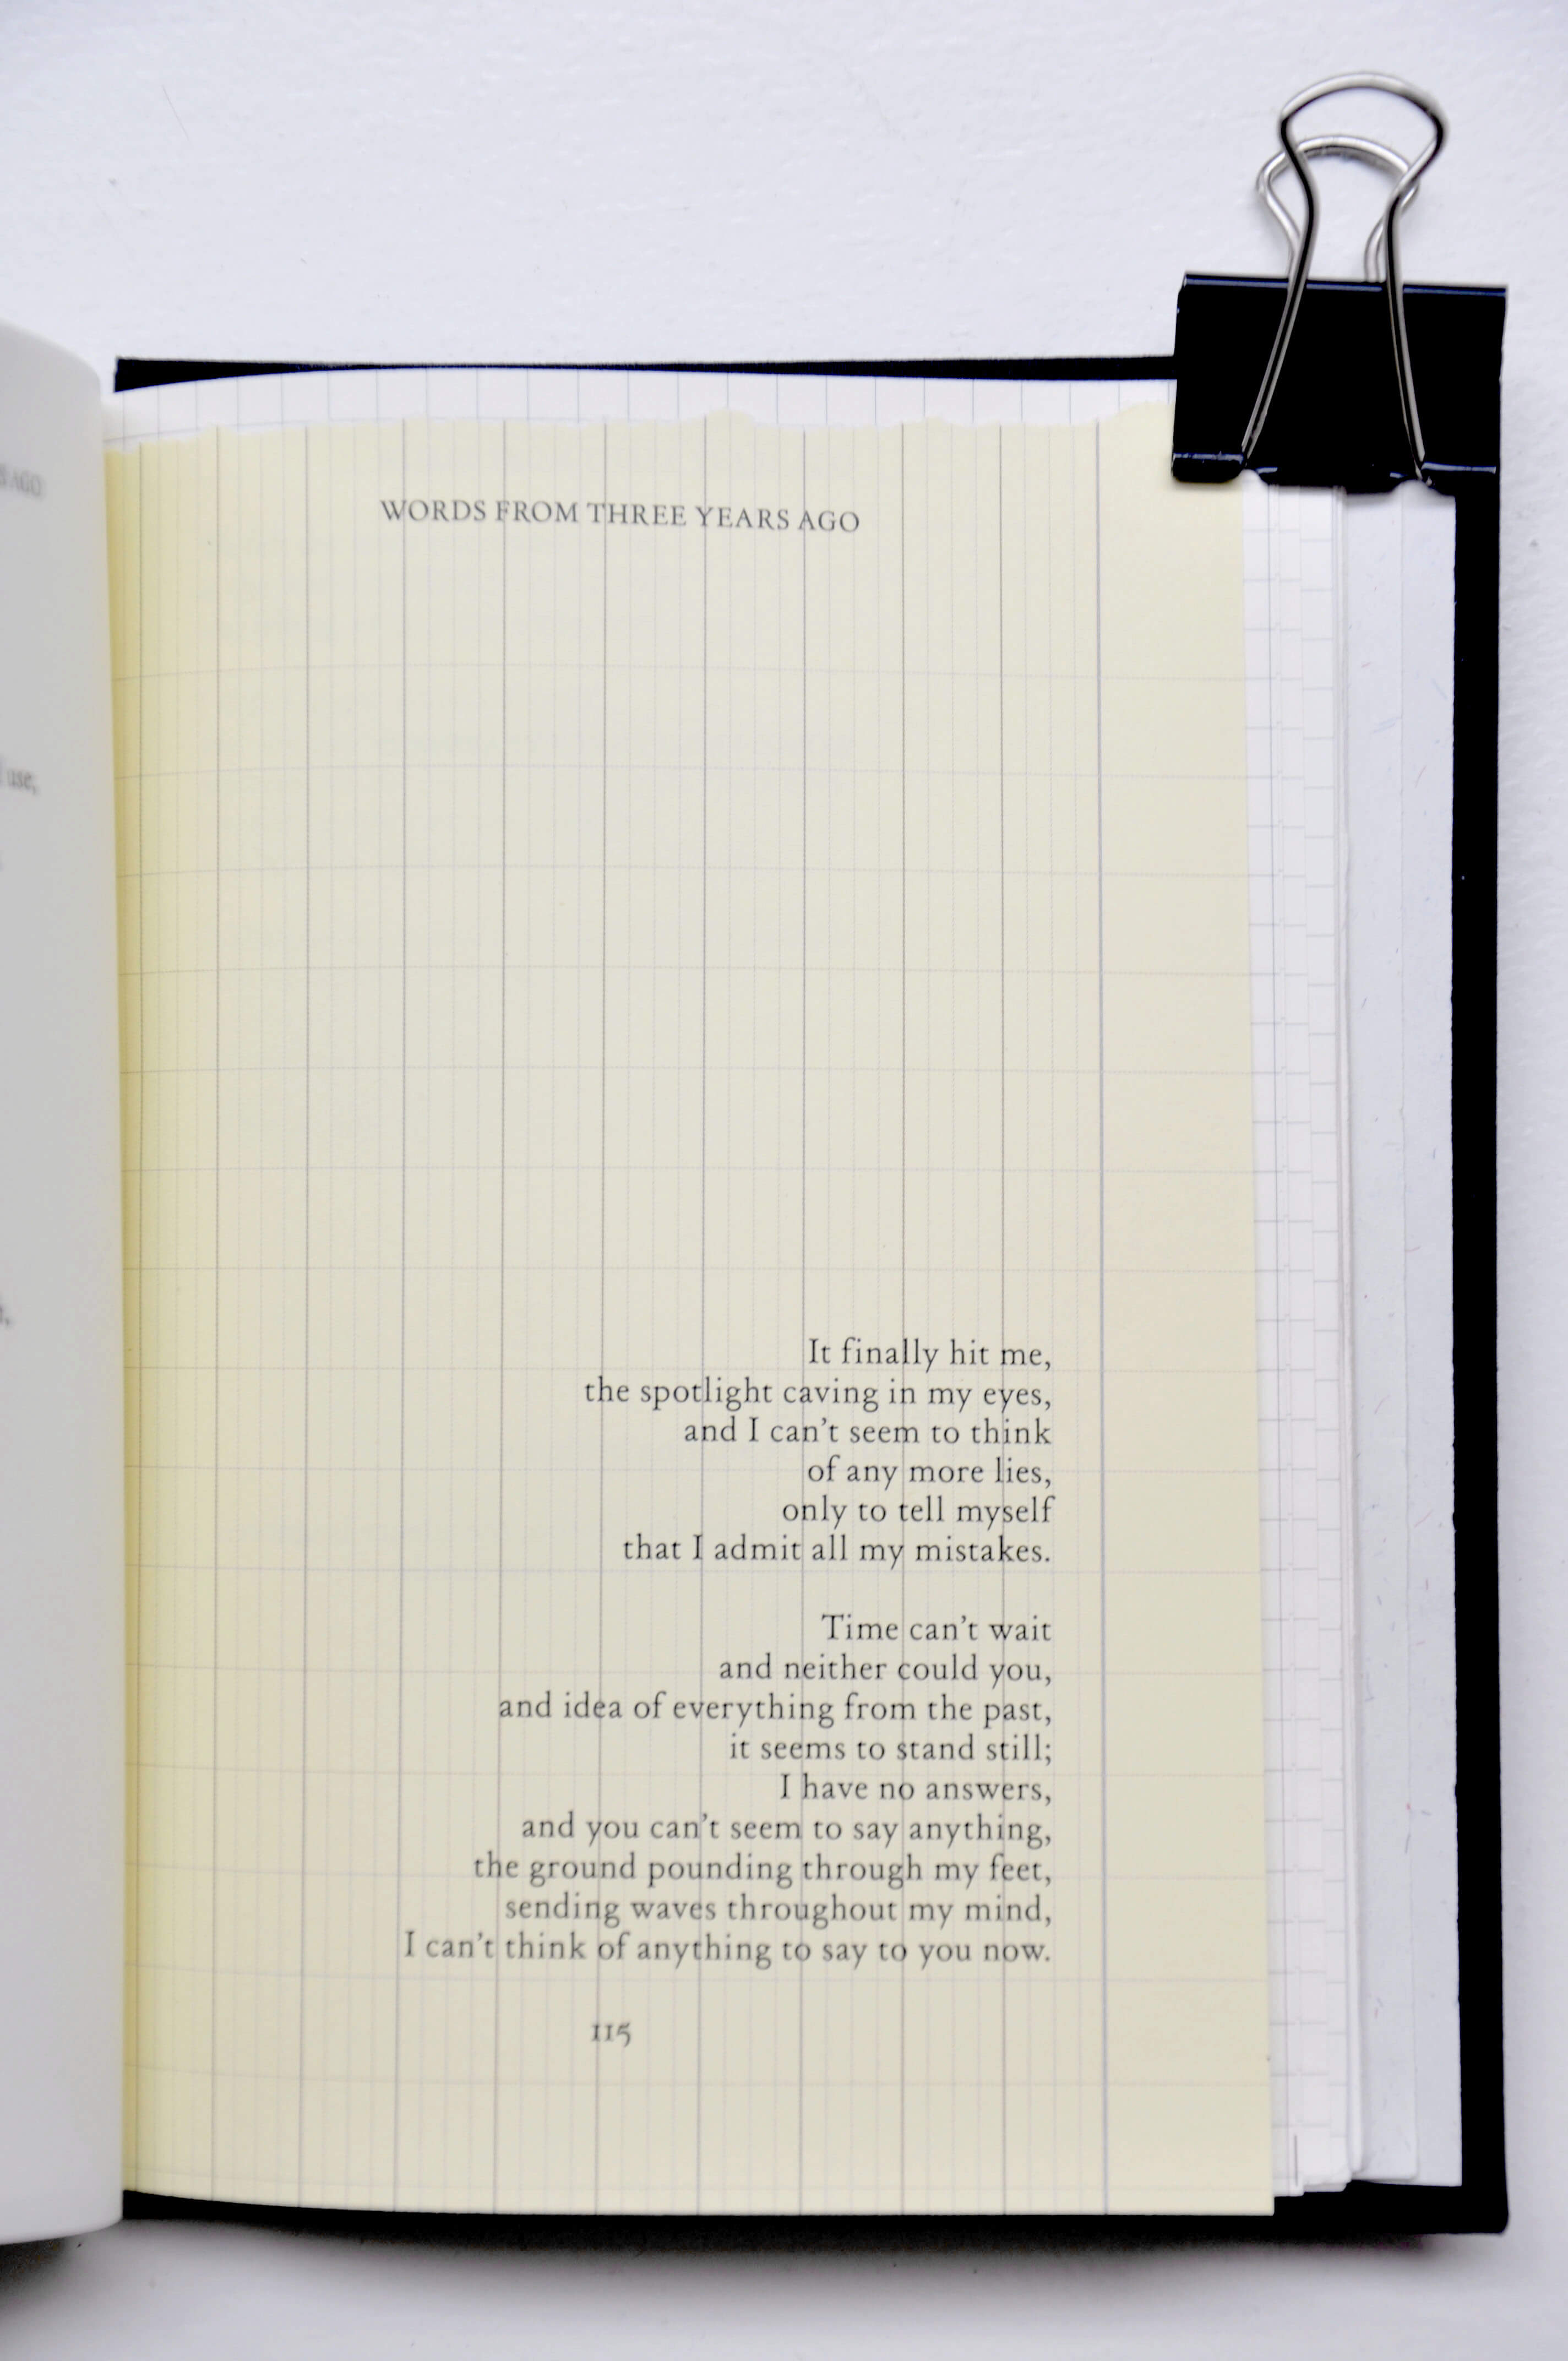 AGO
use,
WORDS FROM THREE YEARS AGO
It finally hit me,
the spotlight caving in my eyes,
and I can't seem to think
of any more lies,
only to tell myself
that I admit all my mistakes.
Time can't wait
and neither could you,
and idea of everything from the past,
it seems to stand still;
I have no answers,
and you can't seem to say anything,
the ground pounding through my feet,
sending waves throughout my mind,
I can't think of anything to say to you now.
115